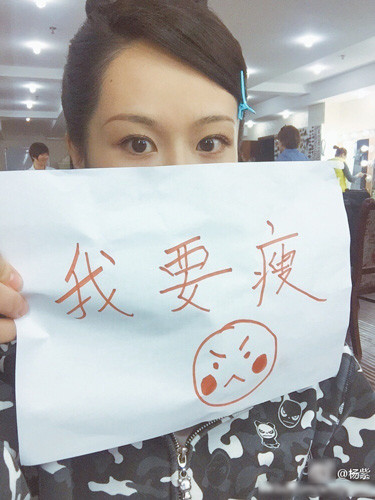 我要瘦
@杨紫